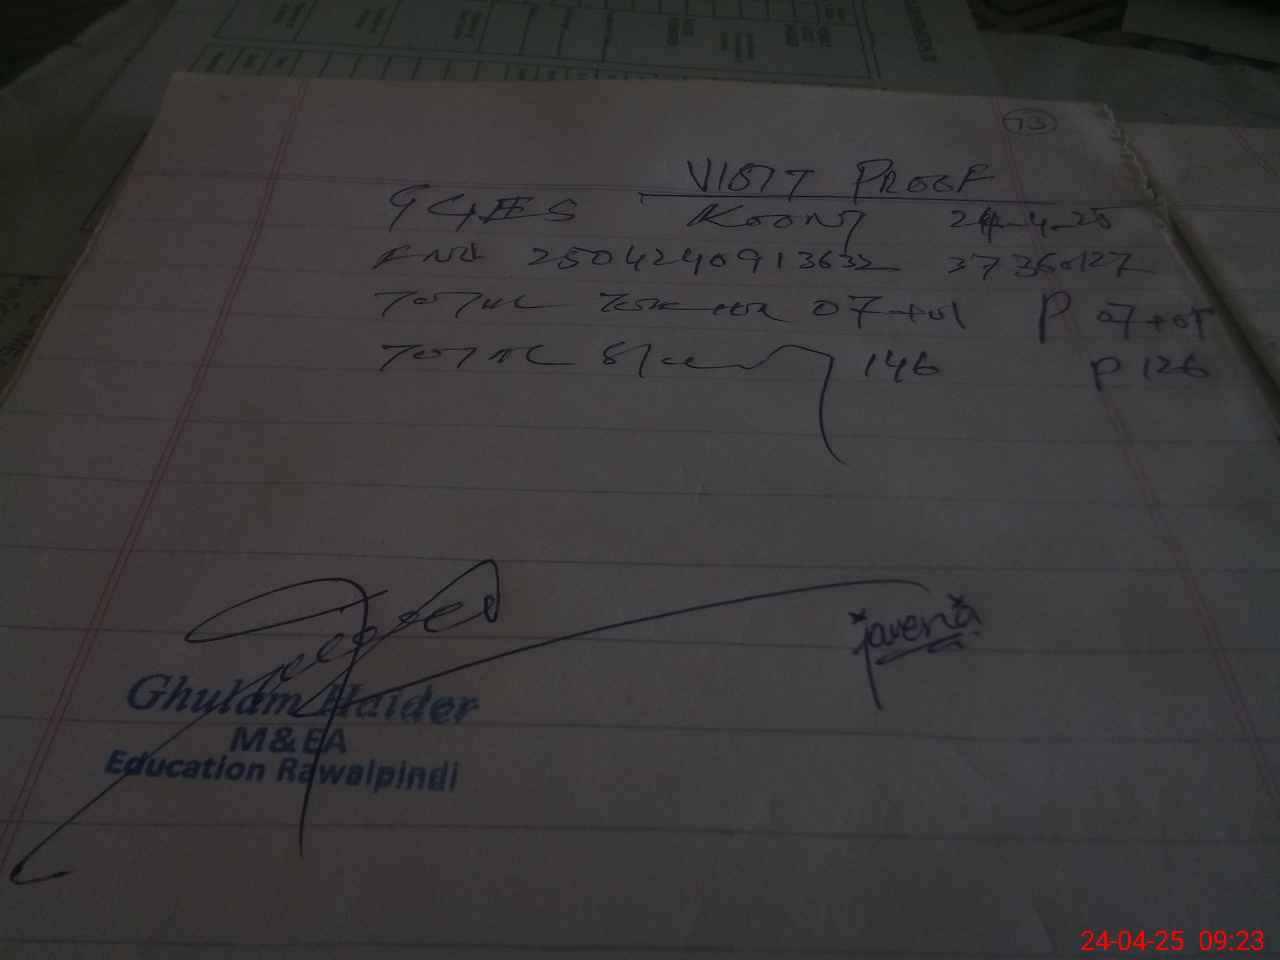 73
VISIT PROOF
GGES KOONT 24-4-25
2504240913632 37360127
TOTAL 07+01 P 07+01
TOTAL 146 P 126
javeria
Ghulam Haider
M&EA
Education Rawalpindi
24-04-25 09:23